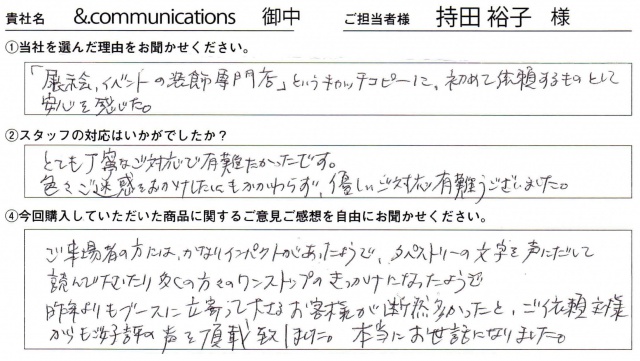 貴社名 &communications 御中 ご担当者様 持田 裕子 様
①当社を選んだ理由をお聞かせください。
「展示会、イベントの装飾専門店」というキャッチコピーに、初めて依頼するものとして
安心を感じた。
②スタッフの対応はいかがでしたか？
とても丁寧なご対応で有難たかったです。
色々ご迷惑をおかけしたにもかかわらず、優しいご対応有難うございました。
④今回購入していただいた商品に関するご意見ご感想を自由にお聞かせください。
ご来場者の方には、かなりインパクトがあったようで、タペストリーの文字を声にだして
読んで下さいたり多くの方々のワンストップのきっかけになったようで
昨年よりもブースに立寄って下さるお客様が断然多かったと、ご依頼主様
からもご好評の声を頂戴致しました。本当にお世話になりました。